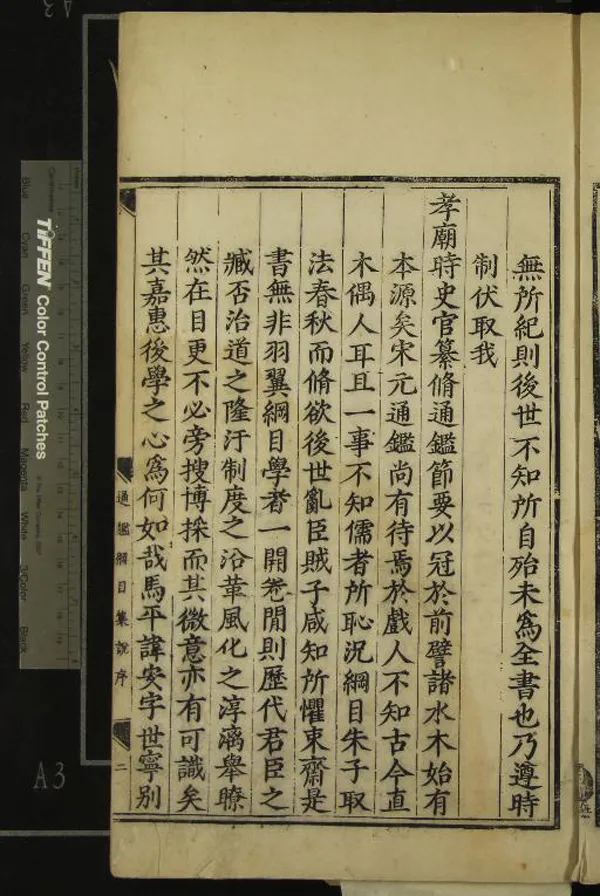 無所紀則後世不知所自殆未爲全書也乃遵時
制伏取我
孝廟時史官纂脩通鑑節要以冠於前譬諸水木始有
本源矣宋元通鑑尚有待焉於戲人不知古今直
木偶人耳且一事不知儒者所恥況綱目朱子取
法春秋而脩欲後世亂臣賊子咸知所懼束齋是
書無非羽翼綱目學者一開卷閒則歷代君臣之
臧否治道之隆汙制度之沿革風化之淳漓舉瞭
然在目更不必旁搜博採而其微意亦有可識矣
其嘉惠後學之心爲何如哉馬平諱安字世寧別
通鑑綱目集說序
二
TIFFEN Color Control Patches
Blue
Cyan
Green
Yellow
Red
Magenta
White
3/Color
Black
A3
A3